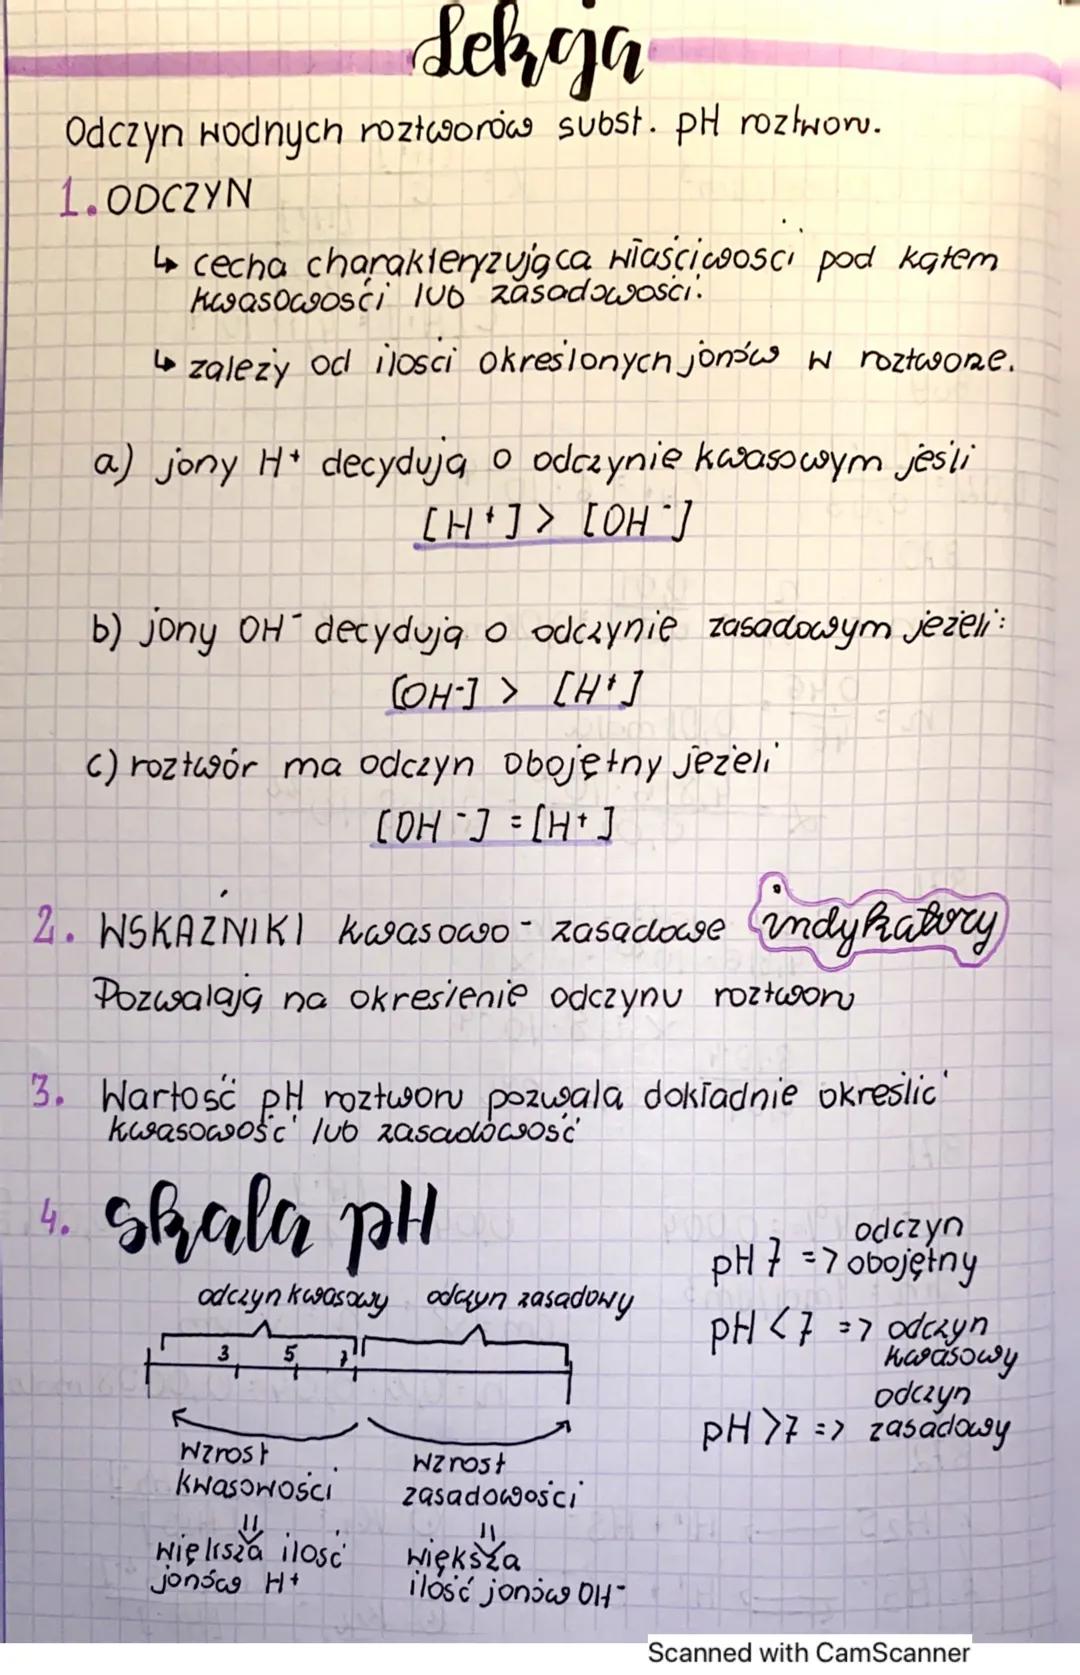 Lekcja
Odczyn wodnych roztworów subst. pH roztworu.
1. ODCZYN
↳ cecha charakteryzująca właściwości pod kątem
kwasowości lub zasadowości.
↳ zależy od ilości określonych jonów w roztworze.
a) jony H⁺ decydują o odczynie kwasowym jeśli
[H⁺] > [OH⁻]
b) jony OH⁻ decydują o odczynie zasadowym jeżeli:
[OH⁻] > [H⁺]
c) roztwór ma odczyn obojętny jeżeli
[OH⁻] = [H⁺]
2. WSKAŹNIKI kwasowo - zasadowe indykatory
Pozwalają na określenie odczynu roztworu
3. Wartość pH roztworu pozwala dokładnie określić
kwasowość lub zasadowość
4. skala pH
odczyn kwasowy odczyn zasadowy
3 5 7
wzrost
kwasowości
większa ilość
jonów H⁺
wzrost
zasadowości
większa
ilość jonów OH⁻
pH 7 => odczyn
obojętny
pH < 7 => odczyn
kwasowy
pH > 7 => odczyn
zasadowy
Scanned with CamScanner